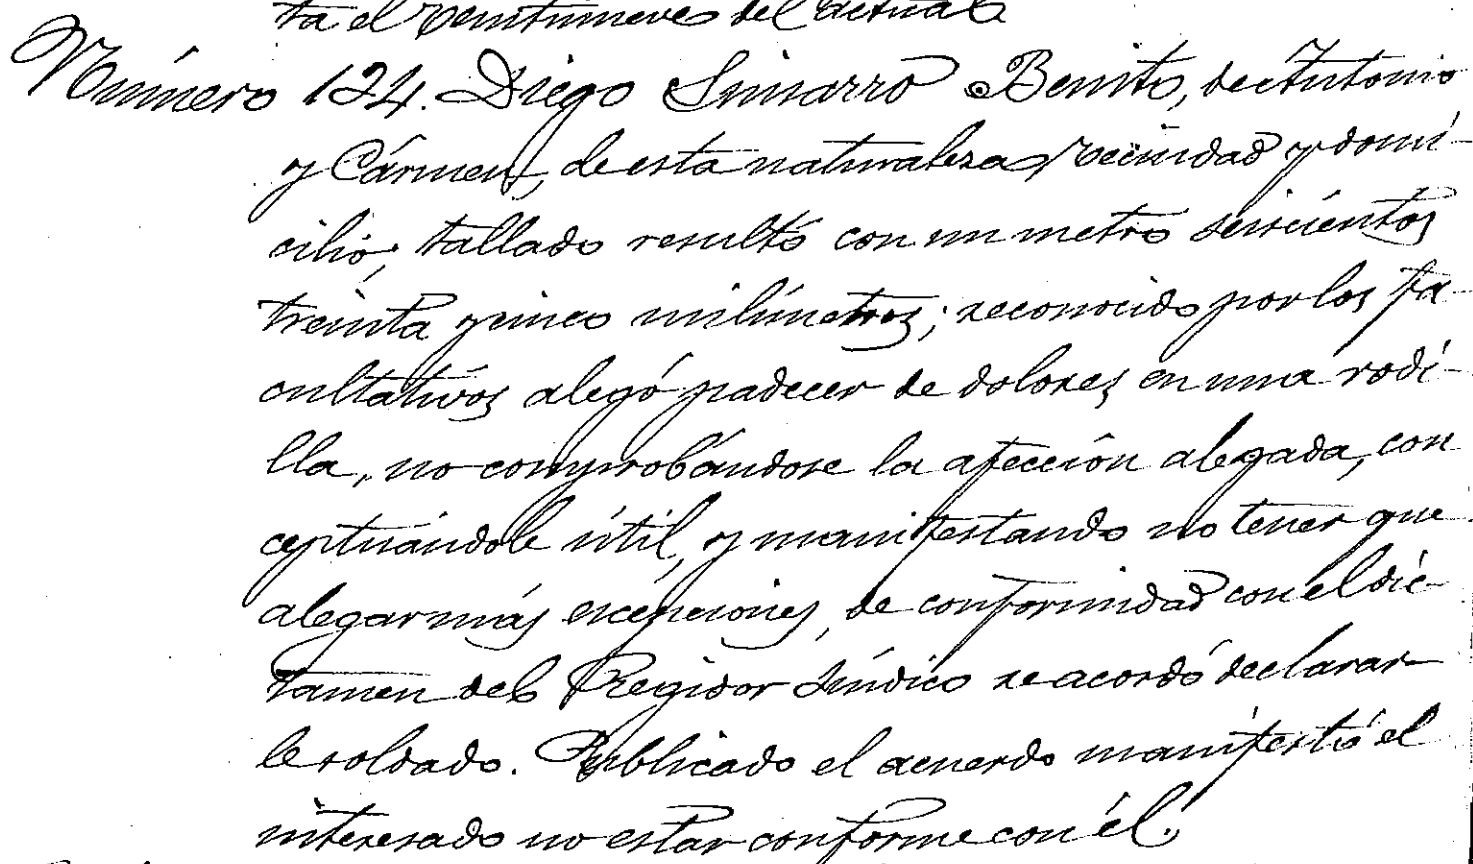 ta el veintinueve del actual
Número 124. Diego Simarro Benito, de Antonio
y Cármen, de esta naturaleza, vecindad y domi-
cilio, tallado resultó con un metro seiscientos
treinta y cinco milímetros; reconocido por los fa-
cultativos alegó padecer de dolores en una rodi-
lla, no comprobándose la afección alegada, con
ceptuándole útil, y manifestando no tener que
alegar más excepciones, de conformidad con el dic-
tamen del Regidor Síndico se acordó declarar
le soldado. Publicado el acuerdo manifestó el
interesado no estar conforme con él.